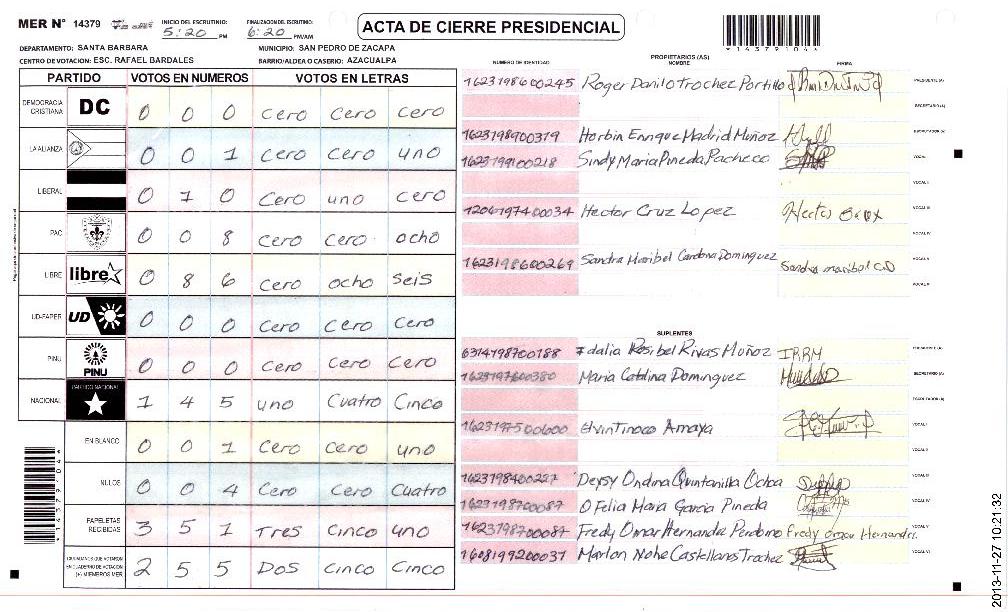 MER N° 14379 INICIO DEL ESCRUTINIO: 5:20 PM FINALIZACION DEL ESCRUTINIO: 6:20 PM/AM ACTA DE CIERRE PRESIDENCIAL
*14379104*
DEPARTAMENTO: SANTA BARBARA MUNICIPIO: SAN PEDRO DE ZACAPA
CENTRO DE VOTACION: ESC. RAFAEL BARDALES BARRIO/ALDEA O CASERIO: AZACUALPA
PARTIDO VOTOS EN NUMEROS VOTOS EN LETRAS
DEMOCRACIA CRISTIANA DC 0 0 0 cero cero cero
LA ALIANZA 0 0 1 cero cero uno
LIBERAL 0 1 0 cero uno cero
PAC 0 0 8 cero cero ocho
LIBRE libre 0 8 6 cero ocho seis
UD-FAPER UD 0 0 0 cero cero cero
PINU PINU 0 0 0 cero cero cero
NACIONAL PARTIDO NACIONAL 1 4 5 uno cuatro cinco
EN BLANCO 0 0 1 cero cero uno
NULOS 0 0 4 cero cero cuatro
PAPELETAS RECIBIDAS 3 5 1 Tres cinco uno
CIUDADANOS QUE VOTARON EN CUADERNO DE VOTACION (+) MIEMBROS MER 2 5 5 Dos cinco cinco
PROPIETARIOS (AS)
NUMERO DE IDENTIDAD NOMBRE FIRMA
1623198600245 Roger Danilo Trochez Portillo PRESIDENTE (A)
SECRETARIO (A)
1623198900319 Horbin Enrique Madrid Muñoz ESCRUTADOR (A)
1623199100218 Sindy Maria Pineda Pacheco VOCAL I
VOCAL II
1206197400034 Hector Cruz Lopez Hector Cruz VOCAL III
VOCAL IV
1623198600269 Sandra Maribel Cardona Dominguez Sandra maribel C.D VOCAL V
VOCAL VI
SUPLENTES
6314198700188 Idalia Rosibel Rivas Muñoz IRRM PRESIDENTE (A)
1623197600380 Maria Catalina Dominguez SECRETARIO (A)
ESCRUTADOR (A)
1623197500600 Elvin Tinoco Amaya VOCAL I
VOCAL II
1623198400227 Deysy Ondina Quintanilla Ochoa VOCAL III
1623198700087 Ofelia Maria Garcia Pineda VOCAL IV
1623198700087 Fredy Omar Hernandez Perdomo Fredy Omar Hernandez VOCAL V
1608199200037 Marlon Nohe Castellanos Trochez VOCAL VI
*14379104*
2013-11-27 10:21:32